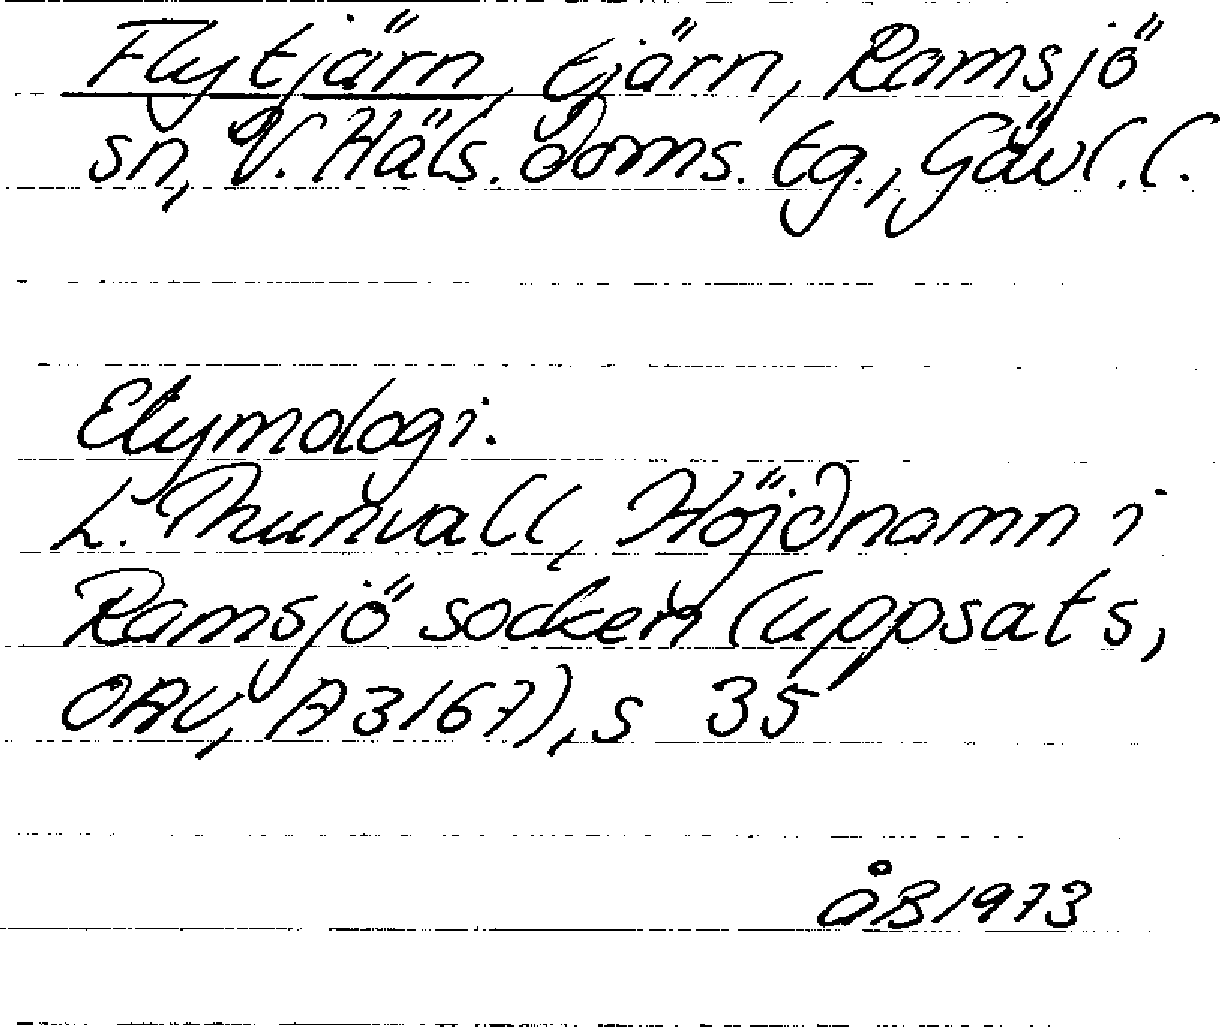 Flytjärn, tjärn, Ramsjö
sn, V. Häls. doms. tg., Gävl. l.
Etymologi.
L. Thunvall, Höjdnamn i
Ramsjö socken (uppsats,
OAU, A 3167), s 35
ÅB 1973